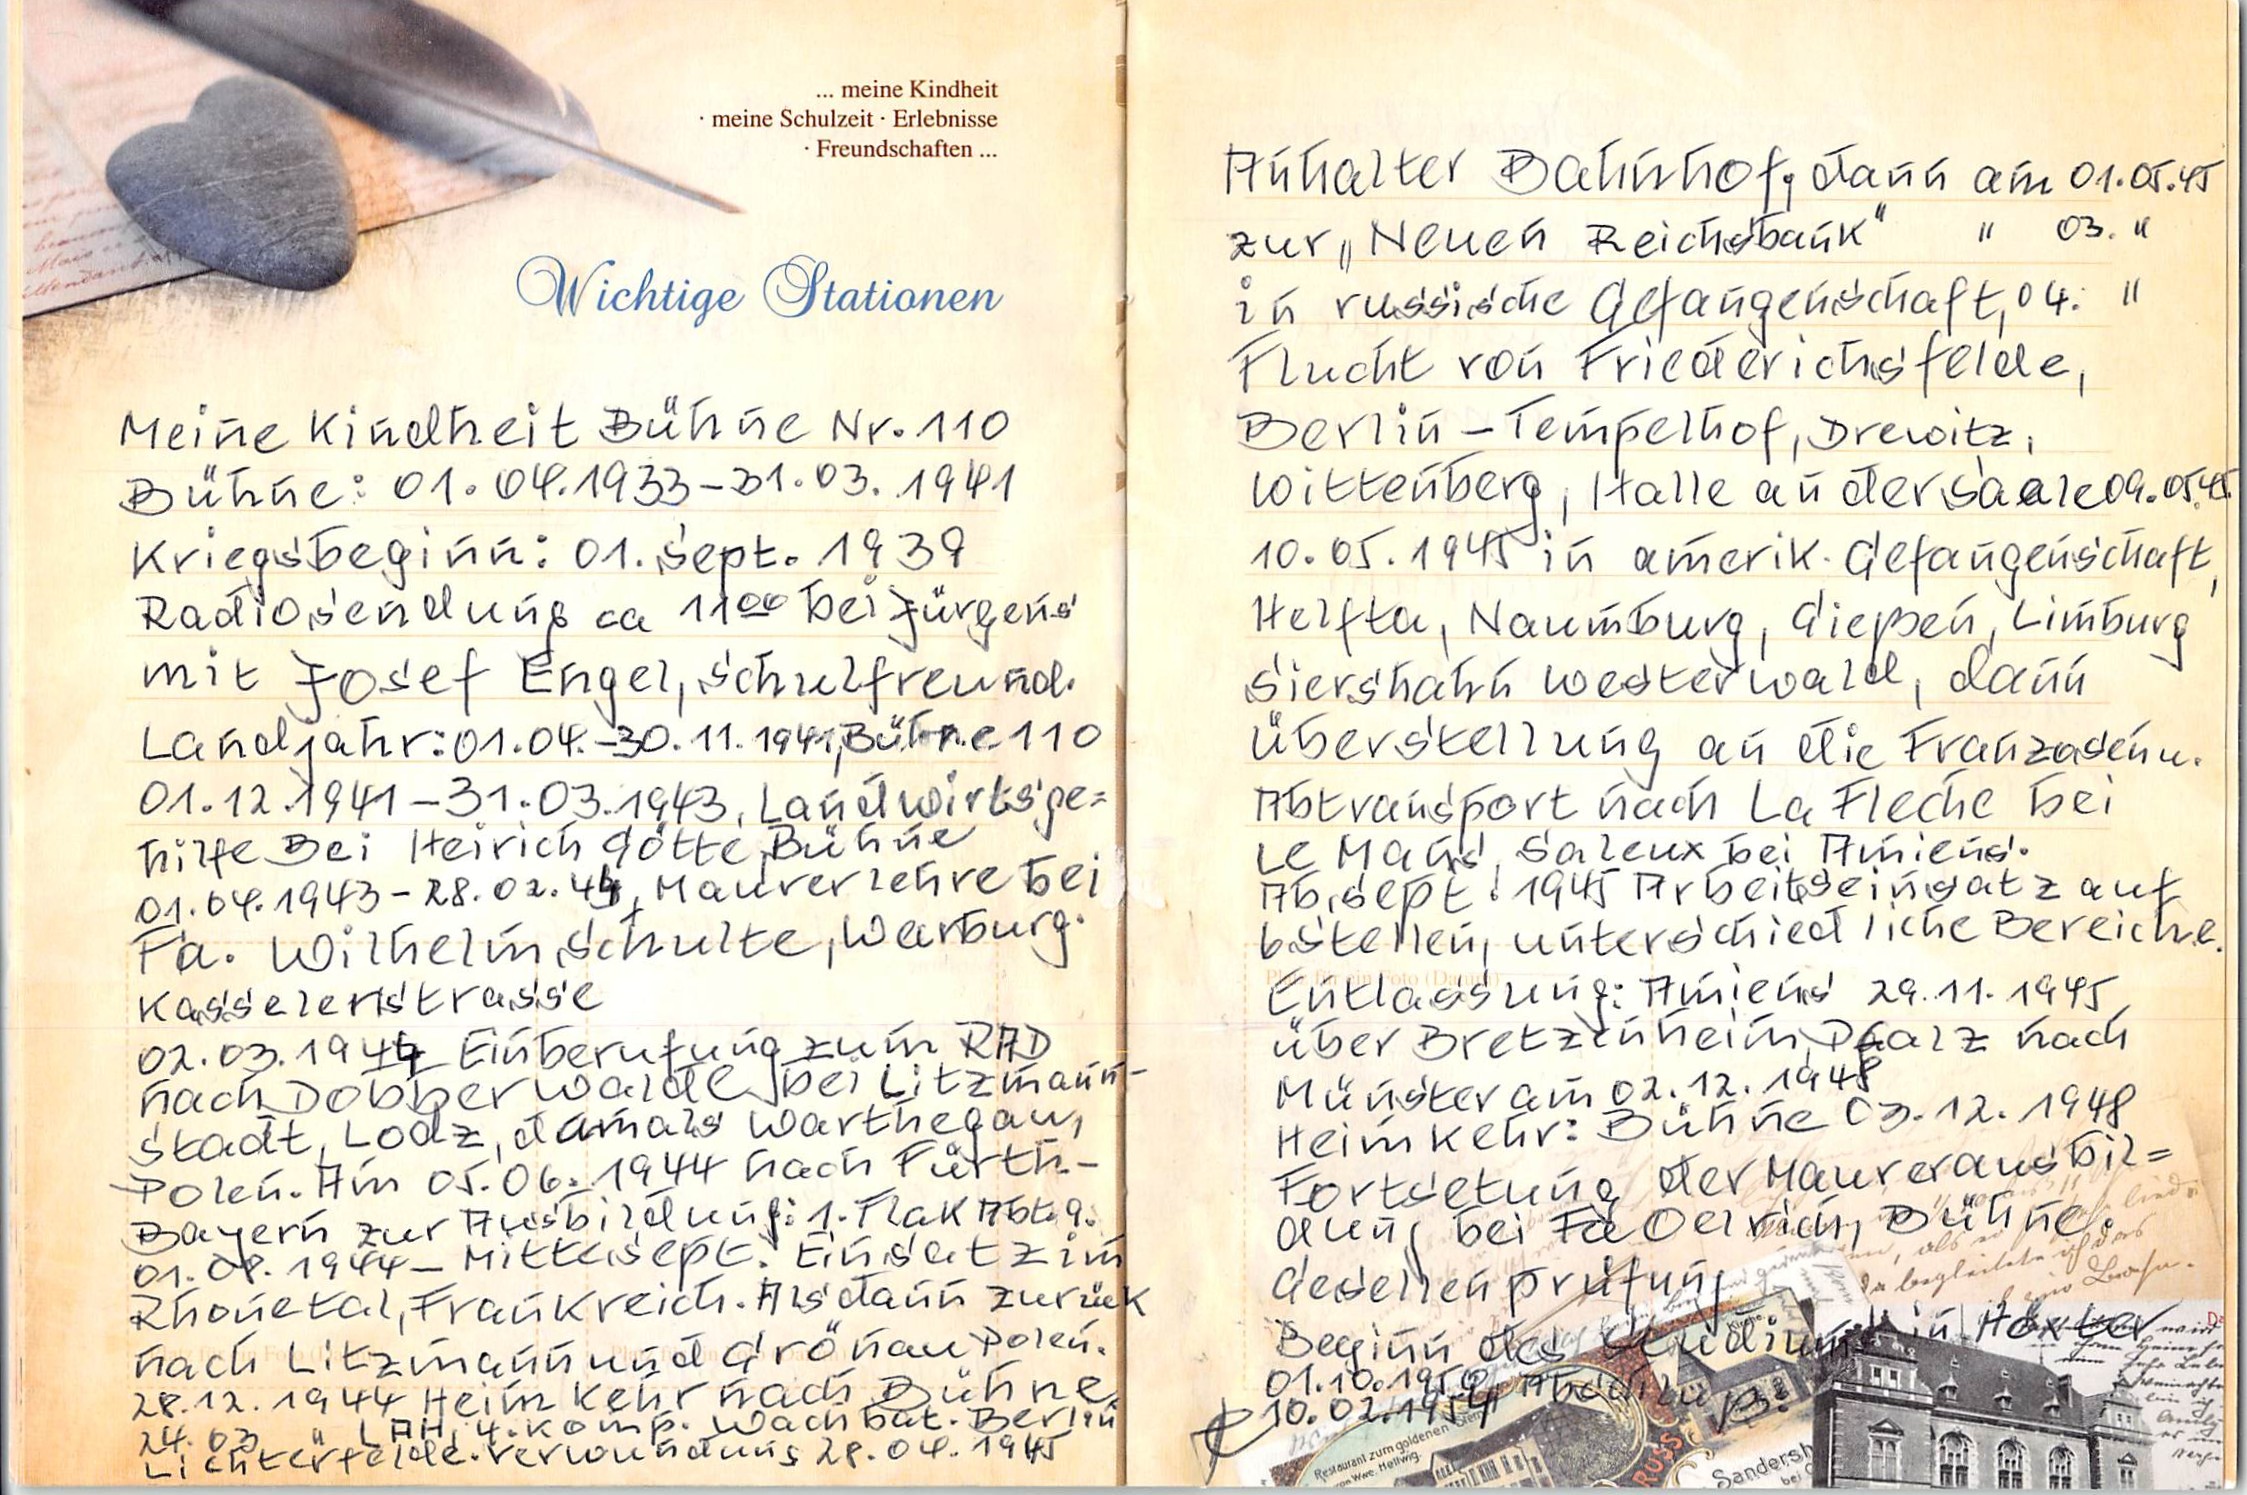 ... meine Kindheit
· meine Schulzeit · Erlebnisse
· Freundschaften ...
Wichtige Stationen
Meine Kindheit Bühne Nr. 110
Bühne: 01.04.1933-31.03.1941
Kriegsbeginn: 01. Sept. 1939
Radiosendung ca 11⁰⁰ bei Jürgens
mit Josef Engel, Schulfreund.
Landjahr: 01.04.-30.11.1941, Bühne 110
01.12.1941-31.03.1943, Landwirtsge=
hilfe Bei Heirich Götte, Bühne
01.04.1943-28.02.44, Maurerlehre bei
Fa. Wilhelm Schulte, Warburg.
Kasselerstrasse
02.03.1944 Einberufung zum RAD
nach Dobberwalde bei Litzmann-
stadt, Lodz, damals Warthegau,
Polen. Am 05.06.1944 nach Fürth-
Bayern zur Ausbildung: 1. Flak Abt. 9.
01.08.1944- Mitte Sept. Einsatz im
Rhonetal, Frankreich. Als dann zurück
nach Litzmann und Grönau Polen.
28.12.1944 Heimkehr nach Bühne,
24.03. " LAH, 4. Komp. Wachbat. Berlin
Lichterfelde. Verwundung 28.04.1945
Anhalter Bahnhof, dann am 01.05.45
zur „Neuen Reichsbank" " 03. "
in russische Gefangenschaft, 04. "
Flucht von Friederichsfelde,
Berlin-Tempelhof, Drewitz,
Wittenberg, Halle an der Saale 09.05.45.
10.05.1945 in amerik. Gefangenschaft,
Helfta, Naumburg, Gießen, Limburg
Siershahn Westerwald, dann
Überstellung an die Franzosen u.
Abtransport nach La Fleche bei
Le Mans, Saleux bei Amiens.
Ab Sept. 1945 Arbeitseinsatz auf
bstellen, unterschiedliche Bereiche.
Entlassung: Amiens 29.11.1945
über Bretzenheim, Pfalz nach
Münster am 02.12.1948
Heimkehr: Bühne 03.12.1948
Fortsetung der Maurerausbil=
dung bei Fa Oelrich, Bühne.
Gesellenprüfung
Beginn des Studiums in Höxter
01.10.1950
10.02.1954
Kirche.
Restaurant zum goldenen Stern
von Wwe. Hellwig.